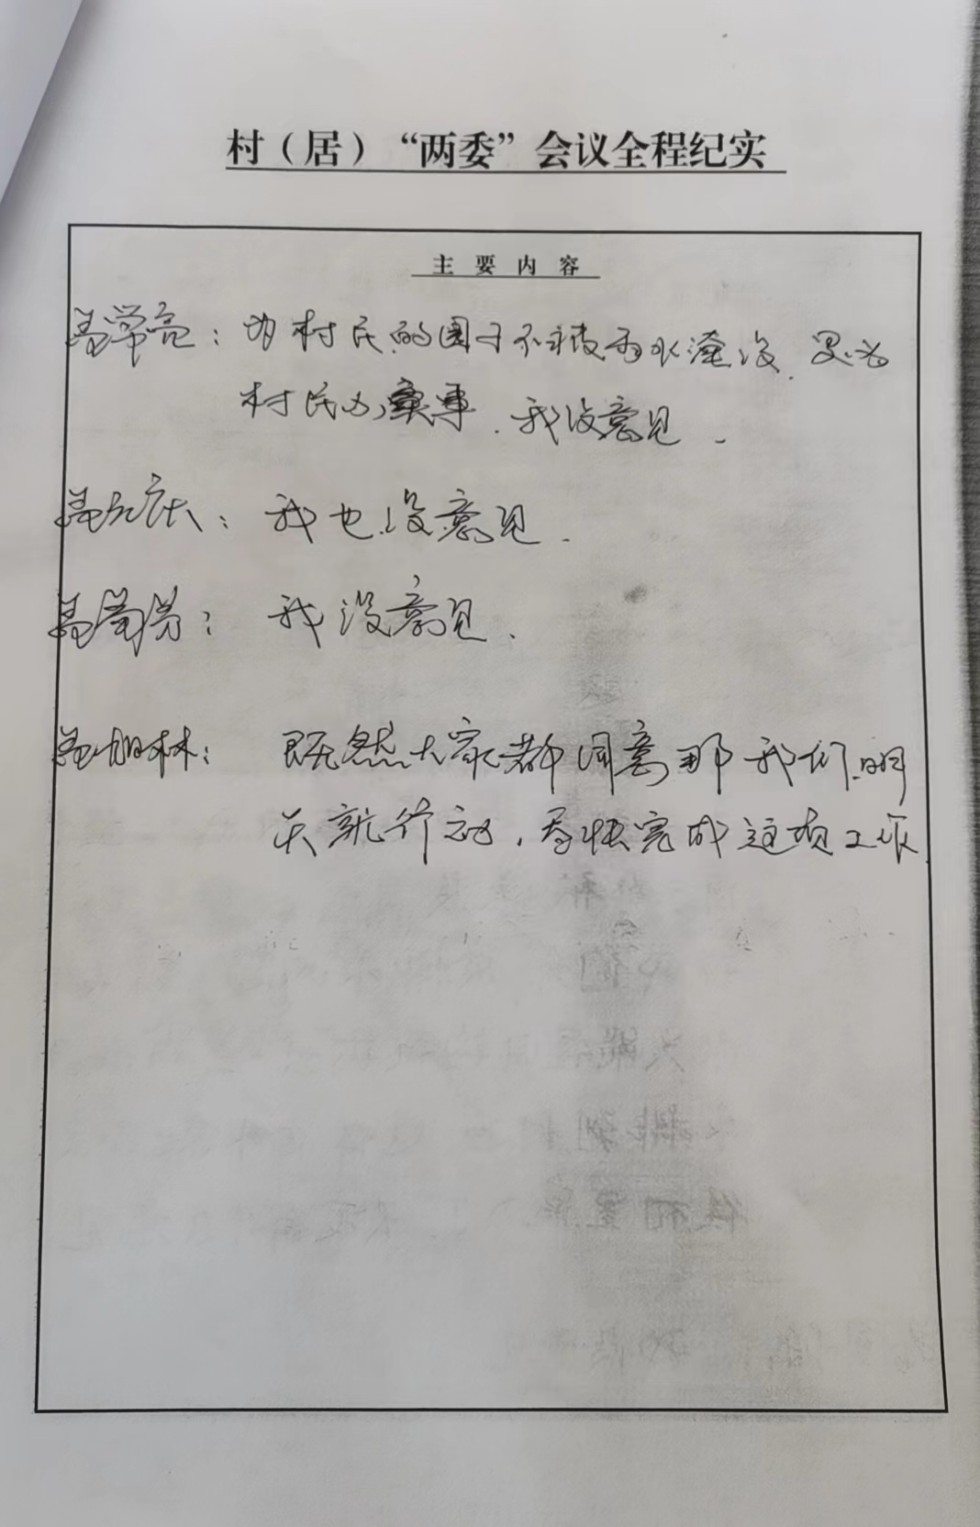 村（居）“两委”会议全程纪实
主要内容
孟学亮：为村民的园子不被雨水淹没，是为
村民办实事，我没意见．
孟庆：我也没意见．
孟：我没意见．
孟旭林：既然大家都同意那我们明
天就行动，尽快完成这项工作